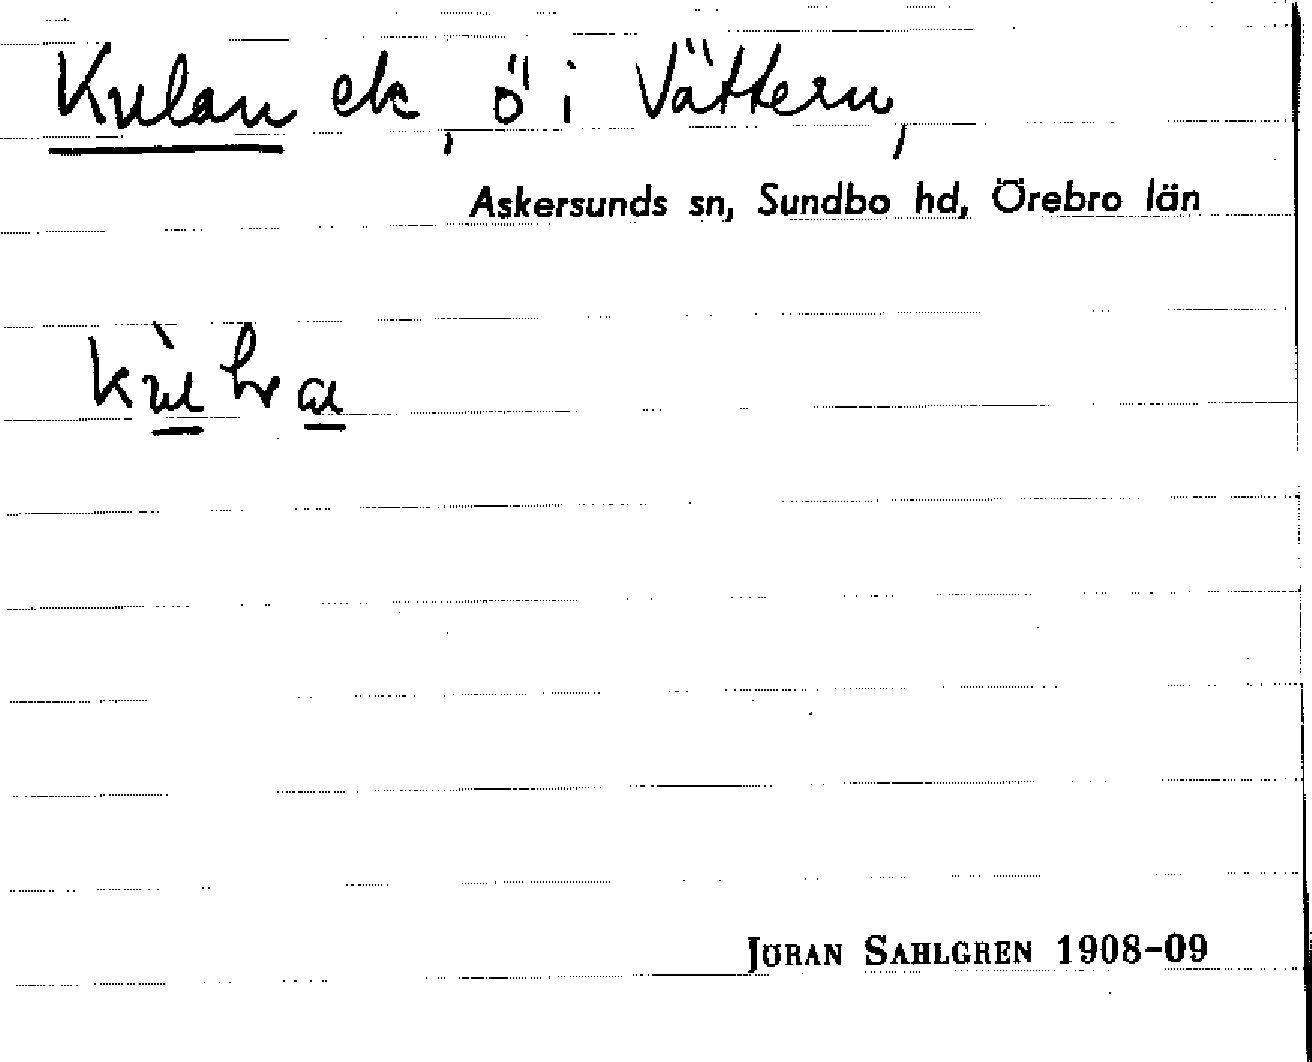 Kulan ek, ö i Vättern,
Askersunds sn, Sundbo hd, Örebro län
JÖRAN SAHLGREN 1908-09